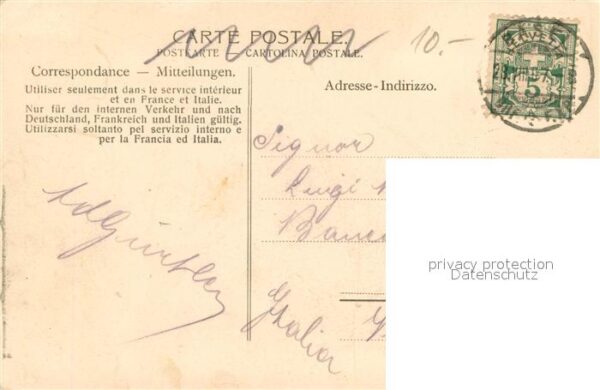 CARTE POSTALE.
POSTKARTE — CARTOLINA POSTALE.
10.-
Correspondance — Mitteilungen.
Utiliser seulement dans le service intérieur
et en France et Italie.
Nur für den internen Verkehr und nach
Deutschland, Frankreich und Italien gültig.
Utilizzarsi soltanto pel servizio interno e
per la Francia ed Italia.
Adresse-Indirizzo.
5
Signor
Luigi
Italia
privacy protection
Datenschutz